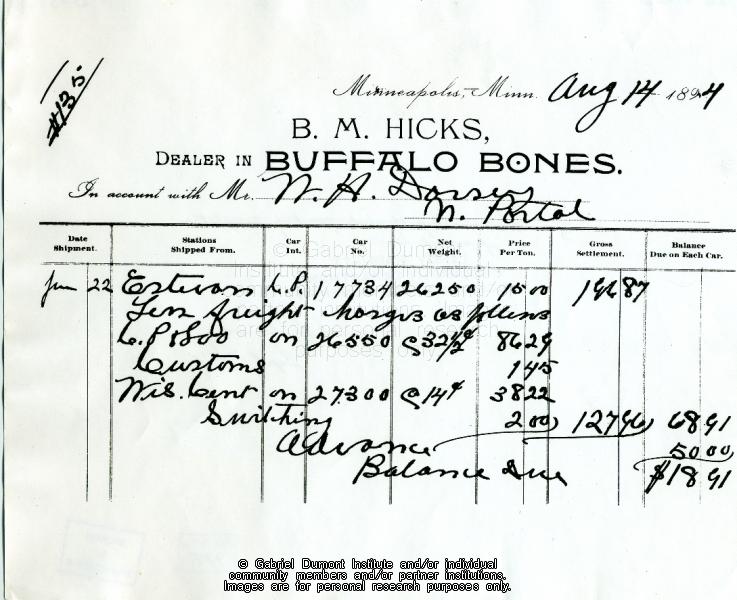 #135
Minneapolis, Minn. Aug 14 1894
B. M. HICKS,
DEALER IN BUFFALO BONES.
In account with Mr. W. H. Dorsey
N. Portal
Date Shipment. Stations Shipped From. Car Int. Car No. Net Weight. Price Per Ton. Gross Settlement. Balance Due on Each Car.
Jun 22 Estevan C.P. 17734 26250 1500 19687
Less freight charges as follows
C.P. & Soo on 26550 @ 32½¢ 8629
Customs 145
Wis. Cent on 27300 @ 14¢ 3822
Switching 200 12796 6891
Advance 5000
Balance Due $1891
© Gabriel Dumont Institute and/or individual
community members and/or partner institutions.
Images are for personal research purposes only.